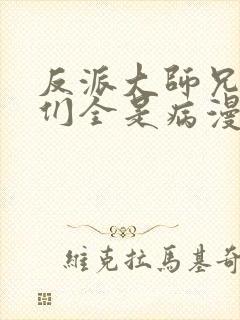 反派大師兄
们全是病漫
維克拉馬基奇